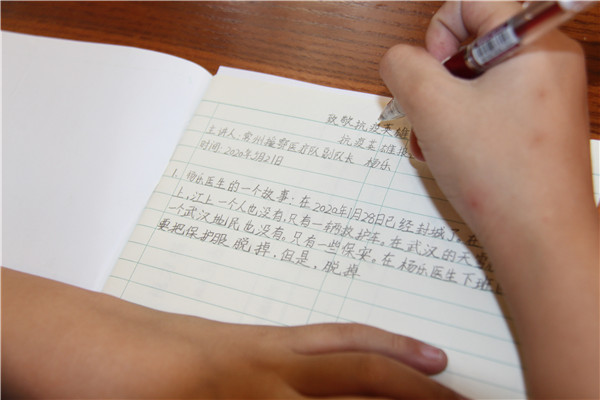 致敬抗疫英雄
抗疫英雄报
主讲人:常州援鄂医疗队副队长 杨乐
时间:2020年2月21日
1. 杨乐医生的一个故事:在2020年1月28日已经封城了,在
上,江上一个人也没有,只有一辆救护车。在武汉的天
一个武汉地民也没有。只有一些保安。在杨乐医生下班
要把保护服脱掉,但是,脱掉